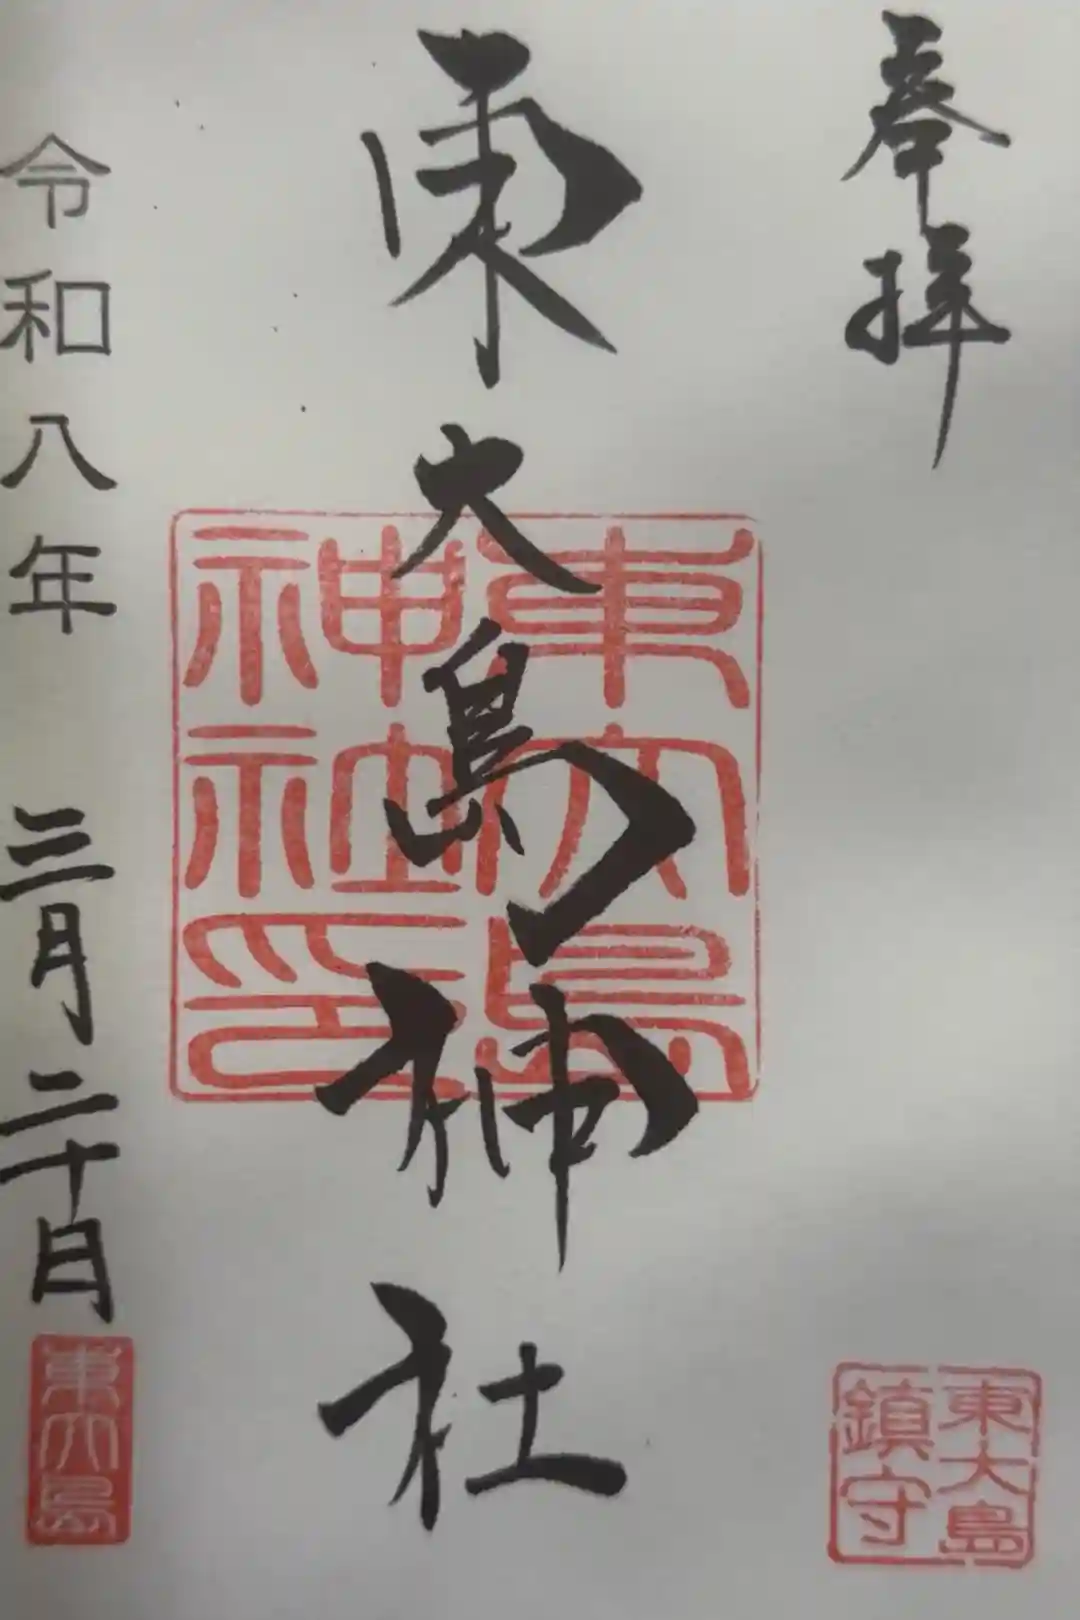 奉拝
東大島
鎮守
東大島神社
東大島
神社印
令和八年 三月二十日
東大島